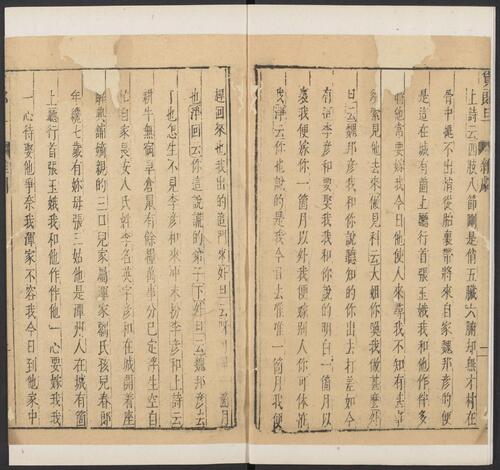 貨郎旦
上詩云四肢八節剛是俏五臟六腑却無才村在
骨中挑不出俏從胎裏帶將來自家魏邦彥的便
是這在城有箇上廳行首張玉娥我和他作伴多
時他常要嫁我今日他使人來尋我不知有甚事
須索見他去來做見科云大姐你喚我做甚麼外
旦云魏邦彥我和你說聽知的你出去打差如今
有這李彥和要娶我我和你說的明白一箇月以
裏我便嫁你一箇月以外我便嫁別人你可休
我淨云你也說的是我今日去准准一箇月我便
趕回來也我出的這門來外旦云
也淨回云你這說謊的弟子下外旦云魏邦彥去
了也怎生不見李彥和來冲末扮李彥和上詩云
耕牛無宿草倉鼠有餘糧萬事分已定浮生空自
忙自家長安人氏姓李名英字彥和在城開着座
解典鋪嫡親的三口兒家屬渾家劉氏孩兒春郎
年纔七歲有奶母張三姑他是潭州人在城有箇
上廳行首張玉娥我和他作伴他一心要嫁我我
一心待娶他爭奈我渾家不容我今日到他家中